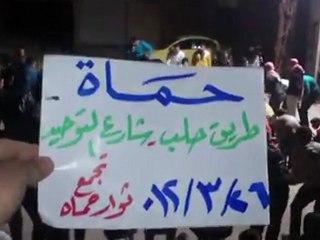 حماة
طريق حلب_شارع التوحيد
تجمع
ثوار حماه
٠١٢/٣/٢٦